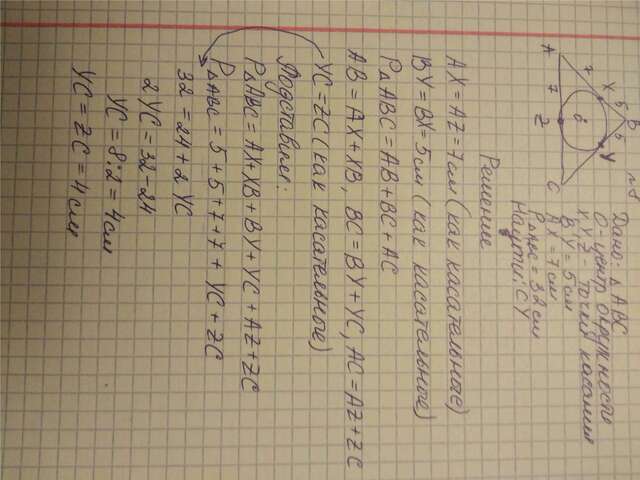 n 8
A
7
X
5
B
5
7
Z
Y
C
Дано: △ABC
O-центр окружности
X,Y,Z - точки касания
BY = 5см
AX = 7см
P△ABC = 32см
Найти: CY
Решение
AX = AZ = 7см (как касательные)
BY = BX = 5см (как касательные)
P△ABC = AB + BC + AC
AB = AX + XB, BC = BY + YC, AC = AZ + ZC
YC = ZC (как касательные)
Подставим:
P△ABC = AX + XB + BY + YC + AZ + ZC
P△ABC = 5 + 5 + 7 + 7 + YC + ZC
32 = 24 + 2 YC
2YC = 32 - 24
YC = 8:2 = 4см
YC = ZC = 4см